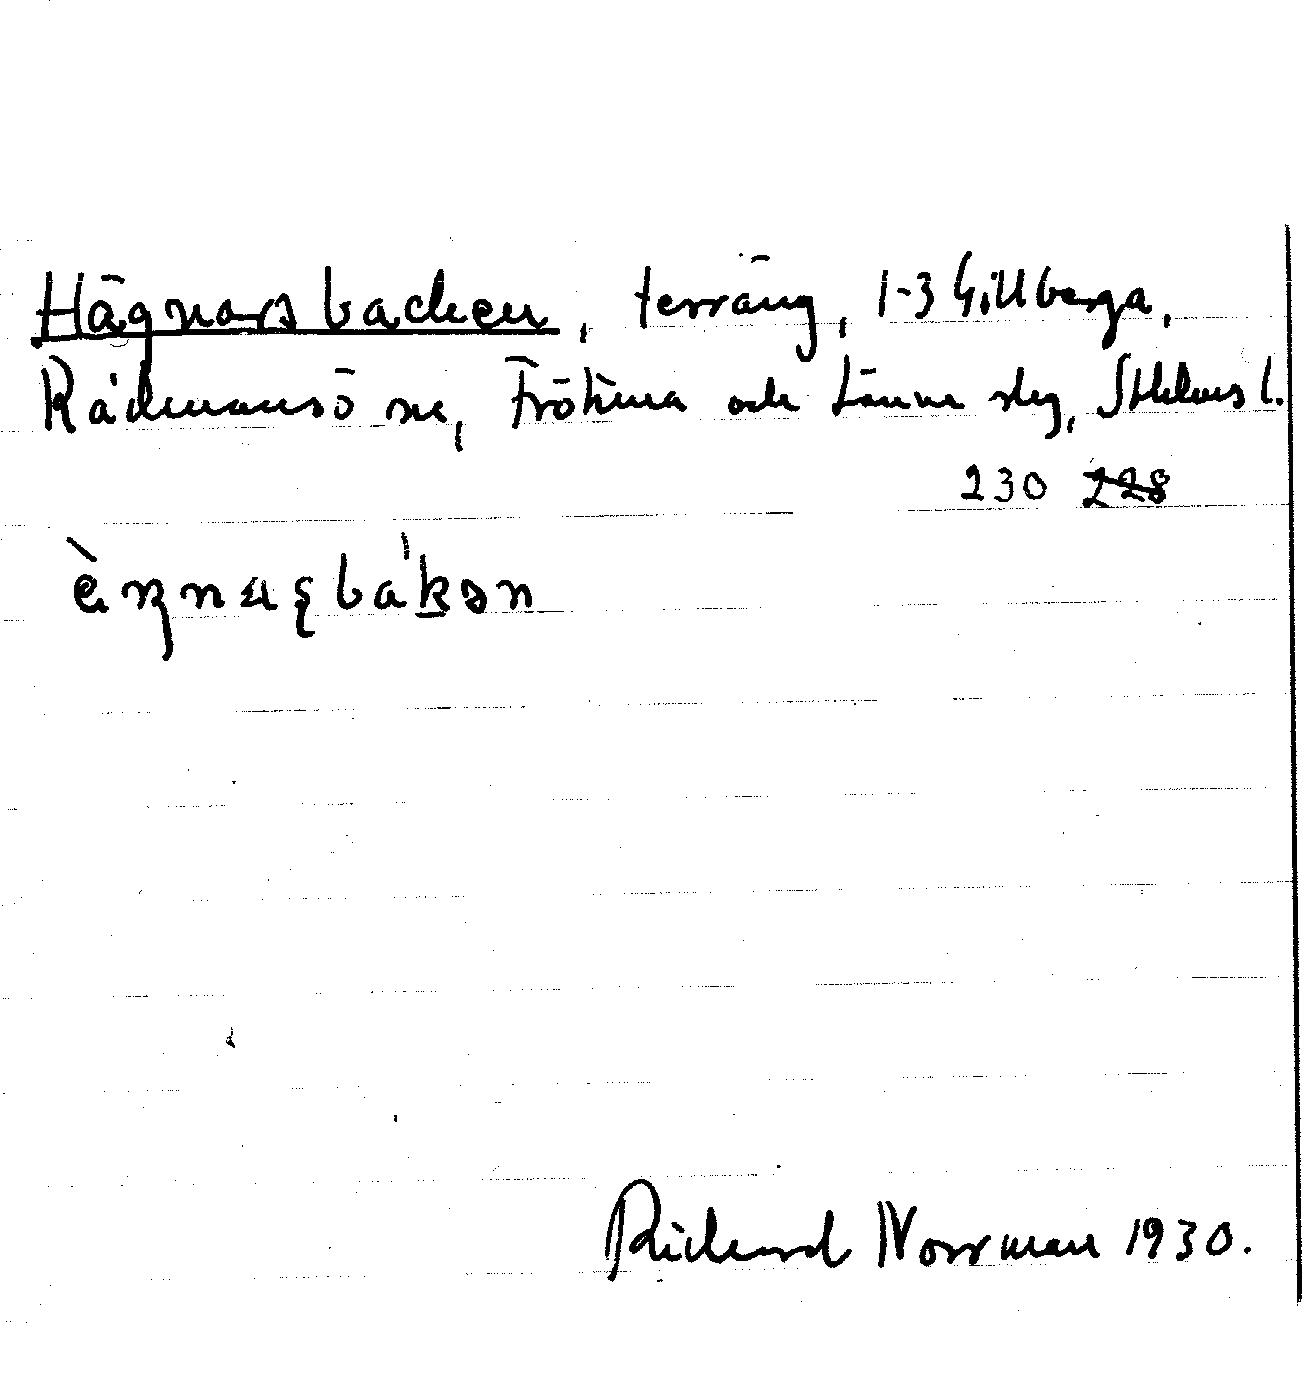 Hägnarsbacken, terräng, 1-3 Gillberga,
Rådmansö sn, Frötuna och Länna skg, Sthlms l.
230 228
Richard Norrman 1930.